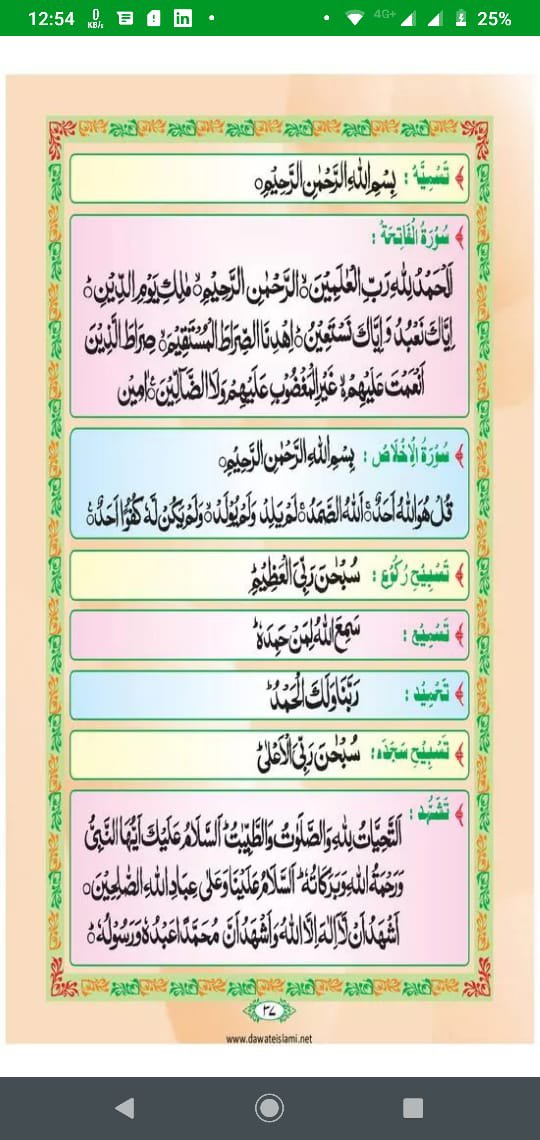 12:54 0 KB/s 4G+ 25%
تَسْمِيَّه : بِسْمِ اللهِ الرَّحْمٰنِ الرَّحِيْمِ○
سُوْرَةُ الْفَاتِحَةُ :
اَلْحَمْدُ لِلّٰهِ رَبِّ الْعٰلَمِيْنَ ۙ الرَّحْمٰنِ الرَّحِيْمِ ۙ مٰلِكِ يَوْمِ الدِّيْنِ ؕ
اِيَّاكَ نَعْبُدُ وَ اِيَّاكَ نَسْتَعِيْنُ ؕ اِهْدِنَا الصِّرَاطَ الْمُسْتَقِيْمَ ۙ صِرَاطَ الَّذِيْنَ
اَنْعَمْتَ عَلَيْهِمْ ۙ۬ غَيْرِ الْمَغْضُوْبِ عَلَيْهِمْ وَلَا الضَّآلِّيْنَ ۠ اٰمِيْن
سُوْرَةُ الْاِخْلَاصُ : بِسْمِ اللهِ الرَّحْمٰنِ الرَّحِيْمِ○
قُلْ هُوَ اللهُ اَحَدٌ ۚ اَللهُ الصَّمَدُ ۚ لَمْ يَلِدْ وَلَمْ يُوْلَدْ ۙ وَلَمْ يَكُنْ لَّهٗ كُفُوًا اَحَدٌ ۠
تَسْبِيْحِ رُكُوْع : سُبْحٰنَ رَبِّيَ الْعَظِيْمِ ؕ
تَسْمِيْع : سَمِعَ اللهُ لِمَنْ حَمِدَهٗ ؕ
تَحْمِيْد : رَبَّنَا وَلَكَ الْحَمْدُ ؕ
تَسْبِيْحِ سَجْدَه : سُبْحٰنَ رَبِّيَ الْاَعْلٰى ؕ
تَشَهُّد :
اَلتَّحِيَّاتُ لِلّٰهِ وَالصَّلَوٰتُ وَالطَّيِّبٰتُ ؕ اَلسَّلَامُ عَلَيْكَ اَيُّهَا النَّبِيُّ
وَرَحْمَةُ اللهِ وَبَرَكَاتُهٗ ؕ اَلسَّلَامُ عَلَيْنَا وَعَلٰى عِبَادِ اللهِ الصّٰلِحِيْنَ○
اَشْهَدُ اَنْ لَّآ اِلٰهَ اِلَّا اللهُ وَاَشْهَدُ اَنَّ مُحَمَّدًا عَبْدُهٗ وَرَسُوْلُهٗ ؕ
٣٧
www.dawateislami.net